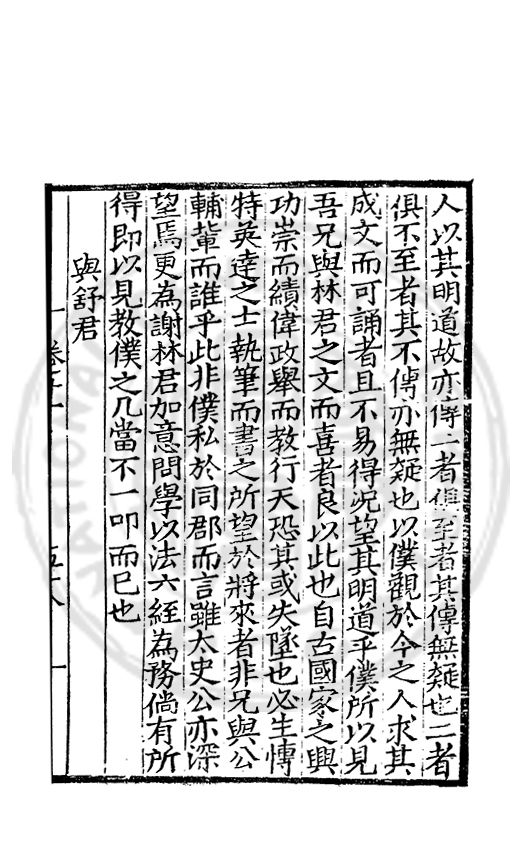 人以其明道故亦傳二者俱至者其傳無疑也二者
俱不至者其不傳亦無疑也以僕觀於今之人求其
成文而可誦者且不易得况望其明道乎僕所以見
吾兄與林君之文而喜者良以此也自古國家之興
功崇而績偉政舉而教行天恐其或失墜也必生愽
特英達之士執筆而書之所望於將來者非兄與公
輔軰而誰乎此非僕私於同郡而言雖太史公亦深
望焉更為謝林君加意問學以法六經為務倘有所
得即以見教僕之几當不一叩而已也
與舒君
卷二十 五十八
NATIONAL